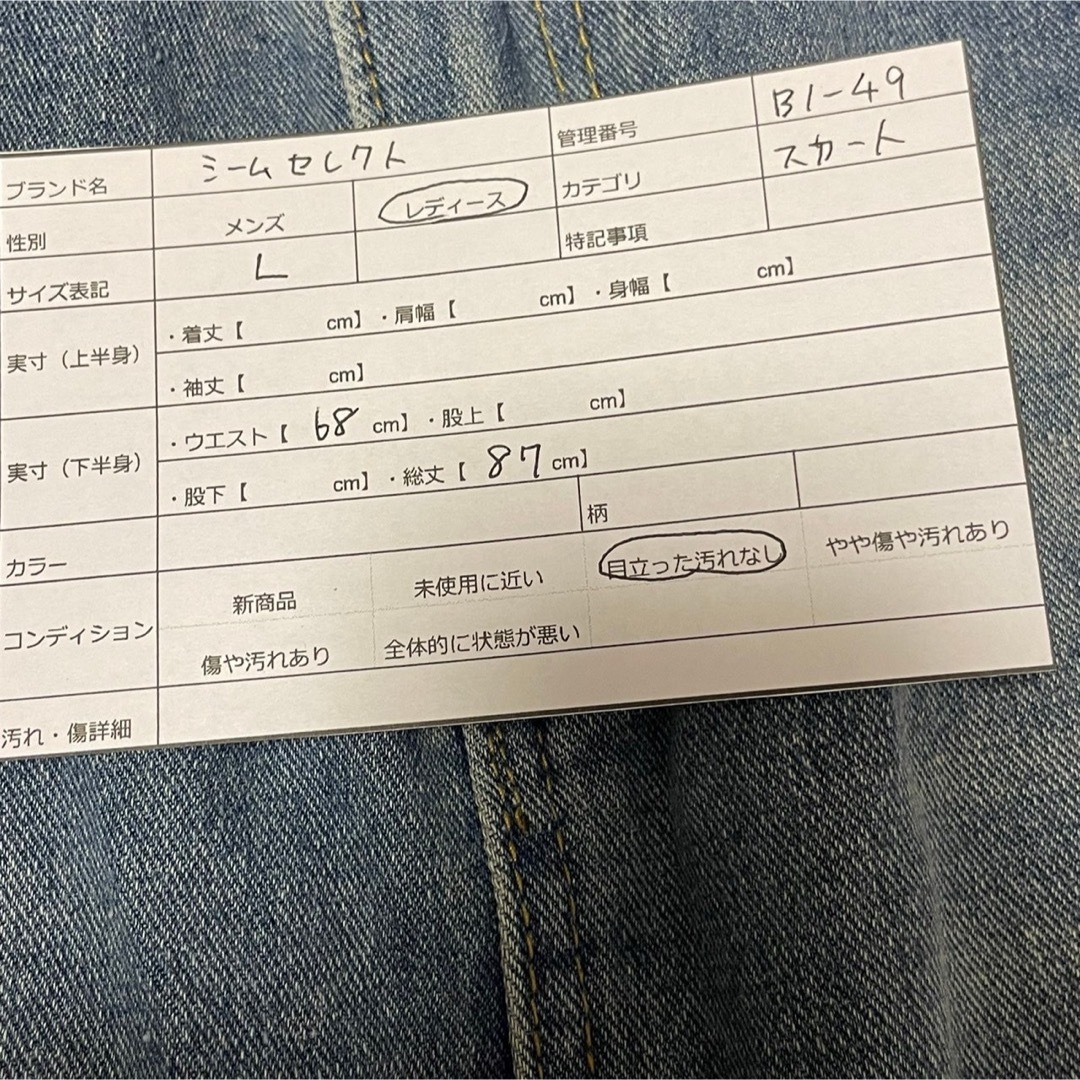 ブランド名 ミームセレクト 管理番号 B1-49
性別 メンズ レディース カテゴリ スカート
サイズ表記 L 特記事項
実寸（上半身） ・着丈【 cm】・肩幅【 cm】・身幅【 cm】
・袖丈【 cm】
実寸（下半身） ・ウエスト【 68 cm】・股上【 cm】
・股下【 cm】・総丈【 87 cm】
カラー 柄
コンディション 新商品 未使用に近い 目立った汚れなし やや傷や汚れあり
傷や汚れあり 全体的に状態が悪い
汚れ・傷詳細